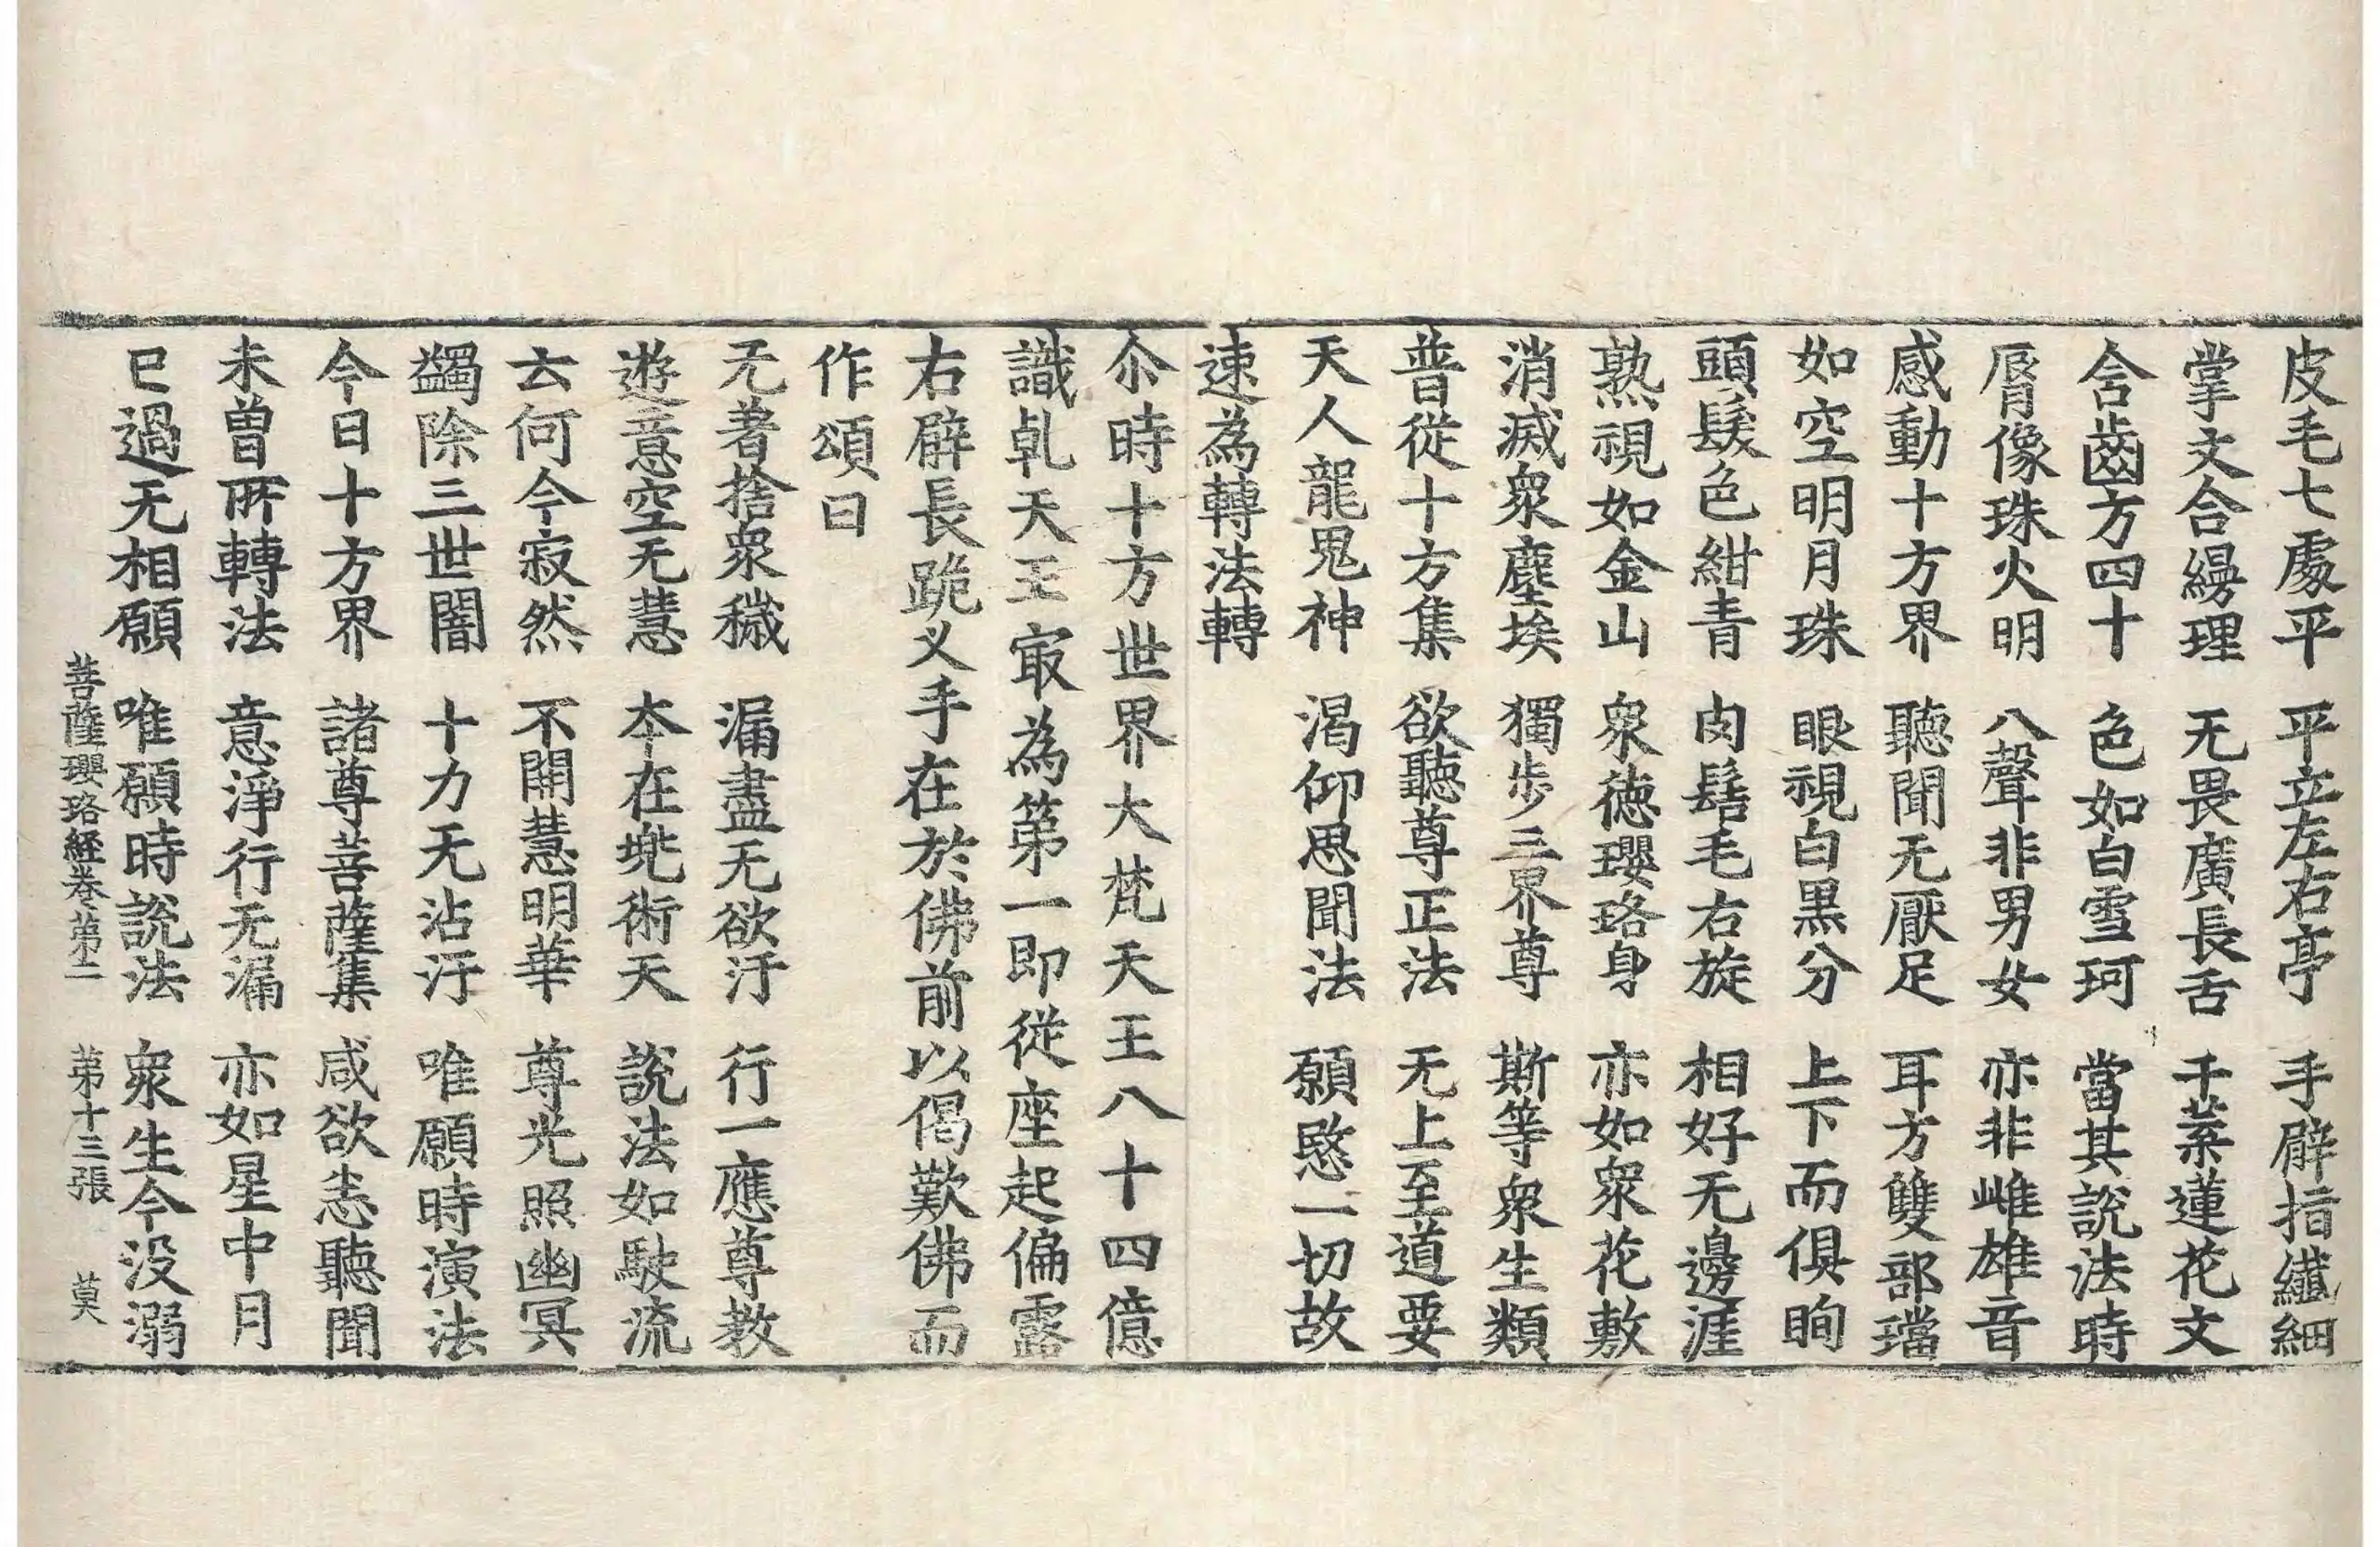 皮毛七處平　平立左右亭　手臂指纖細
掌文合縵理　无畏廣長舌　千葉蓮花文
含齒方四十　色如白雪珂　當其說法時
脣像珠火明　八聲非男女　亦非雌雄音
感動十方界　聽聞无厭足　耳方雙部璫
如空明月珠　眼視白黒分　上下而俱眴
頭髮色紺青　肉髻毛右旋　相好无邊涯
熟視如金山　衆德瓔珞身　亦如衆花敷
消滅衆塵埃　獨步三界尊　斯等衆生類
普從十方集　欲聽尊正法　无上至道要
天人龍鬼神　渴仰思聞法　願愍一切故
速為轉法轉
尒時十方世界大梵天王八十四億
識乹天王㝡為第一即從座起偏露
右臂長跪叉手在於佛前以偈歎佛而
作頌曰
无著捨衆穢　漏盡无欲汙　行一應尊教
遊意空无慧　本在兠術天　說法如駛流
云何今寂然　不開慧明華　尊光照幽冥
蠲除三世闇　十力无沾汙　唯願時演法
今日十方界　諸尊菩薩集　咸欲恙聽聞
未曾所轉法　意淨行无漏　亦如星中月
已過无相願　唯願時說法　衆生今没溺
菩薩瓔珞經卷第二　第十三張　莫